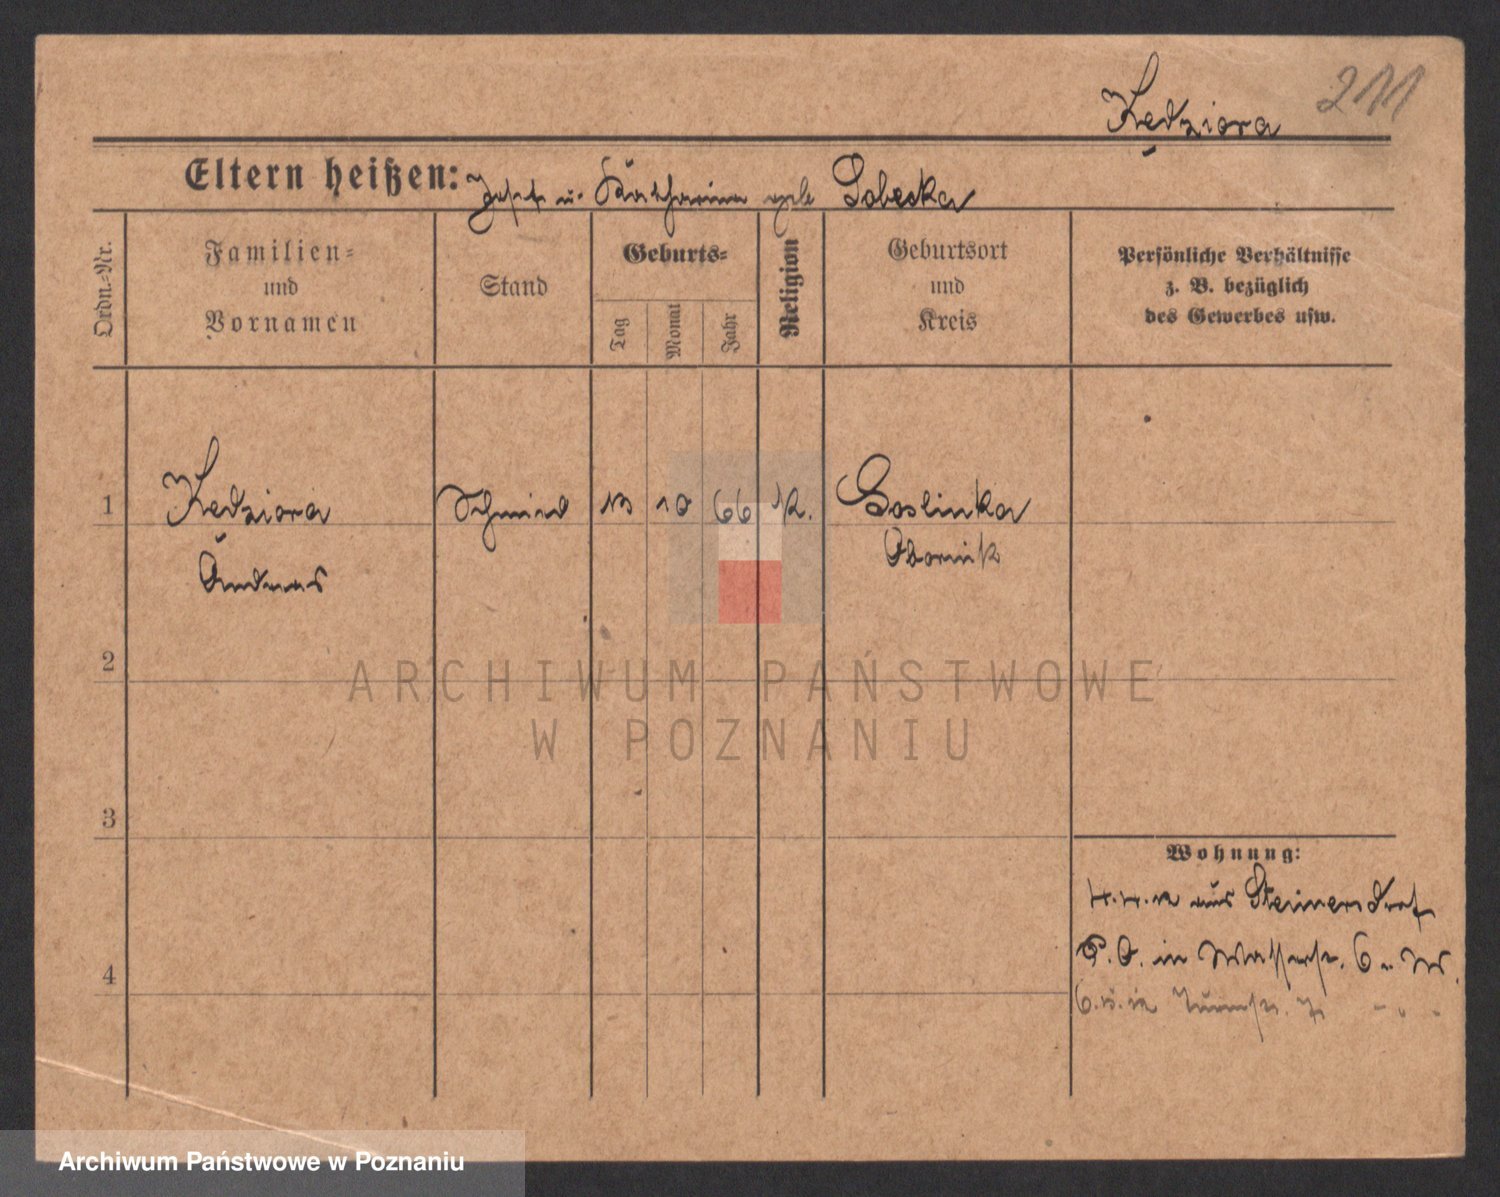 Kędziora 211
Eltern heißen: Josef u. Katharina geb Sobeska
Ordn.-Nr.
Familien-
und
Vornamen
Stand
Geburts-
Tag
Monat
Jahr
Religion
Geburtsort
und
Kreis
Persönliche Verhältnisse
z. B. bezüglich
des Gewerbes usw.
1 Kędziora Schmied 13 10 66 k. Goslinka
Andreas Obornik
2
ARCHIWUM PAŃSTWOWE
W POZNANIU
3
4
Wohnung:
4.4. aus Steinersdorf
in Wasserstr. 6
6. Turmstr.
Archiwum Państwowe w Poznaniu